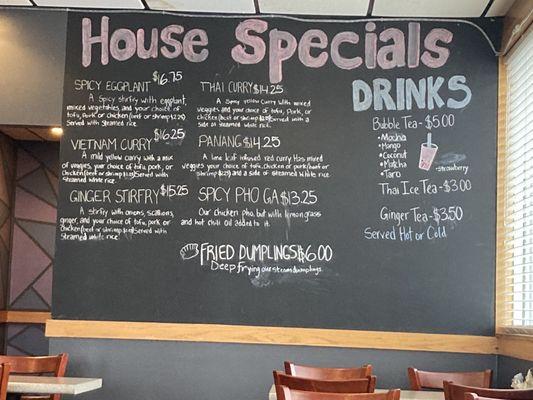 House Specials
SPICY EGGPLANT $16.75
A Spicy stirfry with eggplant,
mixed vegetables and your choice
of tofu, pork, or
chicken (beef or shrimp $2.25)
Served with Steamed rice.
VIETNAM CURRY $16.25
A mild yellow curry with a mix
of veggies, your choice of tofu, pork, or
Chicken (beef or shrimp $2.25) Served with
steamed white rice.
GINGER STIRFRY $15.25
A stirfry with onions, scallions,
ginger, and your choice of tofu, pork, or
Chicken (beef or shrimp $2.25) Served with
Steamed white rice.
THAI CURRY $14.25
A Spicy yellow Curry with mixed
veggies and your choice of tofu, Pork, or
chicken (beef or shrimp $2.25) Served with a
side of Steamed white rice.
PANANG $14.25
A lime leaf infused red curry Has mixed
veggies your choice of tofu, chicken, or pork (beef or
shrimp $2.25) and a side of steamed white rice.
SPICY PHO GA $13.25
Our chicken pho, but with lemon grass
and hot chili oil added to it.
FRIED DUMPLINGS $6.00
Deep frying our steam dumplings
DRINKS
Bubble Tea - $5.00
• Mocha
• Mango
• Coconut
• Matcha
• Taro
• strawberry
Thai Ice Tea - $3.00
Ginger Tea - $3.50
Served Hot or Cold